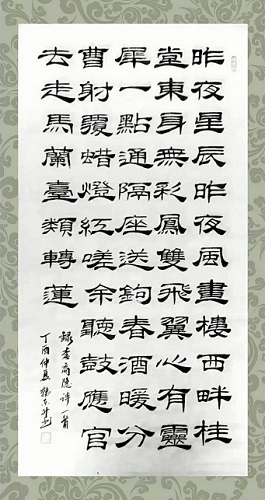 昨夜星辰昨夜風畫樓西畔桂
堂東身無彩鳳雙飛翼心有靈
犀一點通隔座送鉤春酒暖分
曹射覆蜡燈紅嗟余聽鼓應官
去走馬蘭臺類轉蓬
錄李商隱詩一首
丁酉仲夏